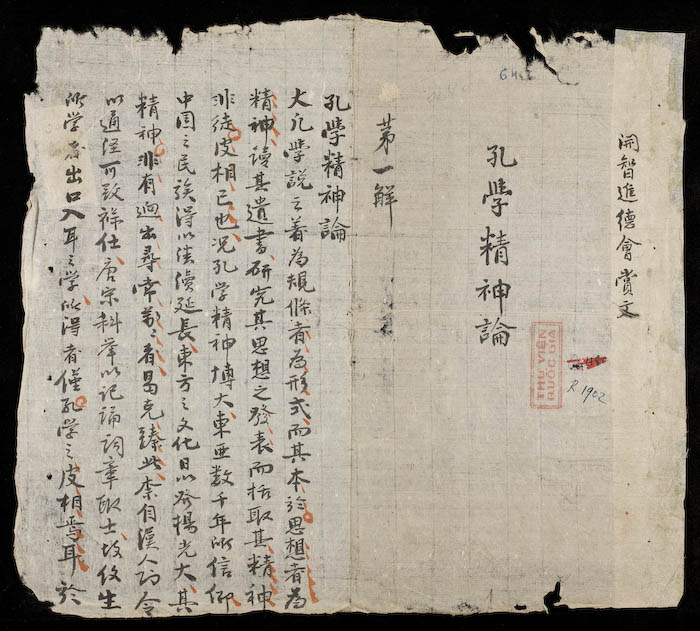 開智進德會賞文
孔學精神論
THƯ VIỆN
QUỐC GIA
R 1902
苐一解
孔學精神論
大凡學説之着為規條者為形式而其本於思想者為
精神讀其遺書研究其思想之發表而括取其精神
非徒皮相已也况孔学精神博大東亜数千年所信仰
中国之民族得以継續延長東方之文化日以發揚光大其
精神非有逈出尋常萬々者曷克臻此柰自漢人詔令
以通經可致祿仕唐宋科举以記誦詞章取士故生
所学者出口入耳之学所得者僅孔学之皮相焉耳於